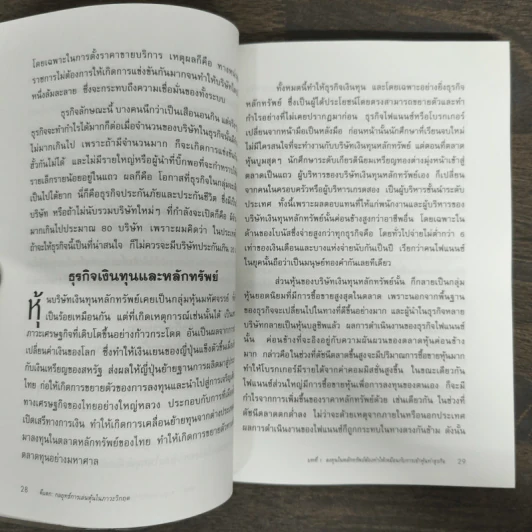 โดยเฉพาะในการตั้งราคาขายบริการ เหตุผลก็คือ ทาง
ราชการไม่ต้องการให้เกิดการแข่งขันกันมากจนทำให้บริษัท
หนึ่งล้มละลาย ซึ่งจะกระทบถึงความเชื่อมั่นของทั้งระบบ
ธุรกิจลักษณะนี้ บางคนนึกว่าเป็นเสือนอนกิน แต่
ธุรกิจจะทำกำไรได้มากก็ต่อเมื่อจำนวนของบริษัทในธุรกิจนั้น
ไม่มากเกินไป เพราะถ้ามีจำนวนมาก ก็จะเกิดการแข่งขัน
ฮั้วกันไม่ได้ และไม่มีรายใหญ่หรือผู้นำที่บิ๊กพอที่จะกำหราบ
รายเล็กรายน้อยอยู่ในแถว ผลก็คือ โอกาสที่ธุรกิจในกลุ่มจะ
เป็นไปได้ยาก นี่ก็คือธุรกิจประกันภัยและประกันชีวิต ซึ่งมี
บริษัท หรือถ้าไม่นับรวมบริษัทใหม่ๆ ที่กำลังจะเปิดก็คือ มี
มากเกินไปประมาณ 80 บริษัท เพราะผมคิดว่า ในประเทศ
ถ้าจะให้ธุรกิจนี้เป็นที่น่าสนใจ ก็ไม่ควรจะมีบริษัทประกันเกิน
ธุรกิจเงินทุนและหลักทรัพย์
หุ้นบริษัทเงินทุนหลักทรัพย์เคยเป็นกลุ่มหุ้นมหัศจรรย์
เป็นร้อยเหมือนกัน แต่ที่เกิดเหตุการณ์เช่นนั้นได้ เป็น
ภาวะเศรษฐกิจที่เติบโตขึ้นอย่างก้าวกระโดด อันเป็นผลจากการ
เปลี่ยนค่าเงินของโลก ซึ่งทำให้เงินเยนของญี่ปุ่นแข็งตัวขึ้น
กับเงินเหรียญของสหรัฐ ส่งผลให้ญี่ปุ่นย้ายฐานการผลิตมาสู่
ไทย ก่อให้เกิดการขยายตัวของการลงทุนและนำไปสู่การเจริญ
ทางเศรษฐกิจของไทยอย่างใหญ่หลวง ประกอบกับการที่
เปิดเสรีทางการเงิน ทำให้เกิดการเคลื่อนย้ายทุนจากต่างประเทศ
มาลงทุนในตลาดหลักทรัพย์ของไทย ทำให้เกิดการขยายตัว
ตลาดทุนอย่างมหาศาล
28 ตีแตก: กลยุทธ์การเล่นหุ้นในภาวะวิกฤต
ทั้งหมดนี้ทำให้ธุรกิจเงินทุน และโดยเฉพาะอย่างยิ่งธุรกิจ
หลักทรัพย์ ซึ่งเป็นผู้ได้ประโยชน์โดยตรงสามารถขยายตัวและทำ
กำไรอย่างที่ไม่เคยปรากฏมาก่อน ธุรกิจไฟแนนซ์หรือโบรกเกอร์
เปลี่ยนจากหน้ามือเป็นหลังมือ ก่อนหน้านั้นนักศึกษาที่เรียนจบใหม่
ไม่มีใครสนใจที่จะทำงานกับบริษัทเงินทุนหลักทรัพย์ แต่ตอนที่ตลาด
หุ้นบูมสุดๆ นักศึกษาระดับเกียรตินิยมเหรียญทองต่างมุ่งหน้าเข้าสู่
ตลาดเป็นแถว ผู้บริหารของบริษัทเงินทุนหลักทรัพย์เอง ก็เปลี่ยน
จากคนในครอบครัวหรือผู้บริหารเกรดสอง เป็นผู้บริหารชั้นนำระดับ
ประเทศ ทั้งนี้เพราะผลตอบแทนที่ให้แก่พนักงานและผู้บริหารของ
บริษัทเงินทุนหลักทรัพย์นั้นค่อนข้างสูงกว่าอาชีพอื่น โดยเฉพาะใน
ด้านของโบนัสซึ่งจ่ายสูงกว่าทุกธุรกิจคือ โดยทั่วไปจ่ายไม่ต่ำกว่า 6
เท่าของเงินเดือนและบางแห่งจ่ายนับกันเป็นปี เรียกว่าคนไฟแนนซ์
ในยุคนั้นถือว่าเป็นมนุษย์ทองคำกันเลยทีเดียว
ส่วนหุ้นของบริษัทเงินทุนหลักทรัพย์นั้น ก็กลายเป็นกลุ่ม
หุ้นยอดนิยมที่มีการซื้อขายสูงสุดในตลาด เพราะนอกจากพื้นฐาน
ของธุรกิจจะเปลี่ยนไปในทางที่ดีขึ้นอย่างมาก และผู้นำในธุรกิจหลาย
บริษัทกลายเป็นหุ้นบลูชิพแล้ว ผลการดำเนินงานของธุรกิจไฟแนนซ์
ค่อนข้างที่จะอิงอยู่กับความผันผวนของตลาดหุ้นค่อนข้าง
มาก กล่าวคือในช่วงที่ดัชนีตลาดขึ้นสูงจะมีปริมาณการซื้อขายหุ้นมาก
ทำให้โบรกเกอร์มีรายได้จากค่าคอมมิสชั่นสูงขึ้น ในขณะเดียวกัน
ไฟแนนซ์ส่วนใหญ่มีการซื้อขายหุ้นเพื่อการลงทุนของตนเอง ก็จะมี
กำไรจากการเพิ่มขึ้นของราคาหลักทรัพย์ด้วย เช่นเดียวกัน ในช่วงที่
ดัชนีตลาดตกต่ำลง ไม่ว่าจะด้วยเหตุจากภายในหรือนอกประเทศ
ผลการดำเนินงานของไฟแนนซ์ก็ถูกกระทบในทางตรงกันข้าม ดังนั้น
29